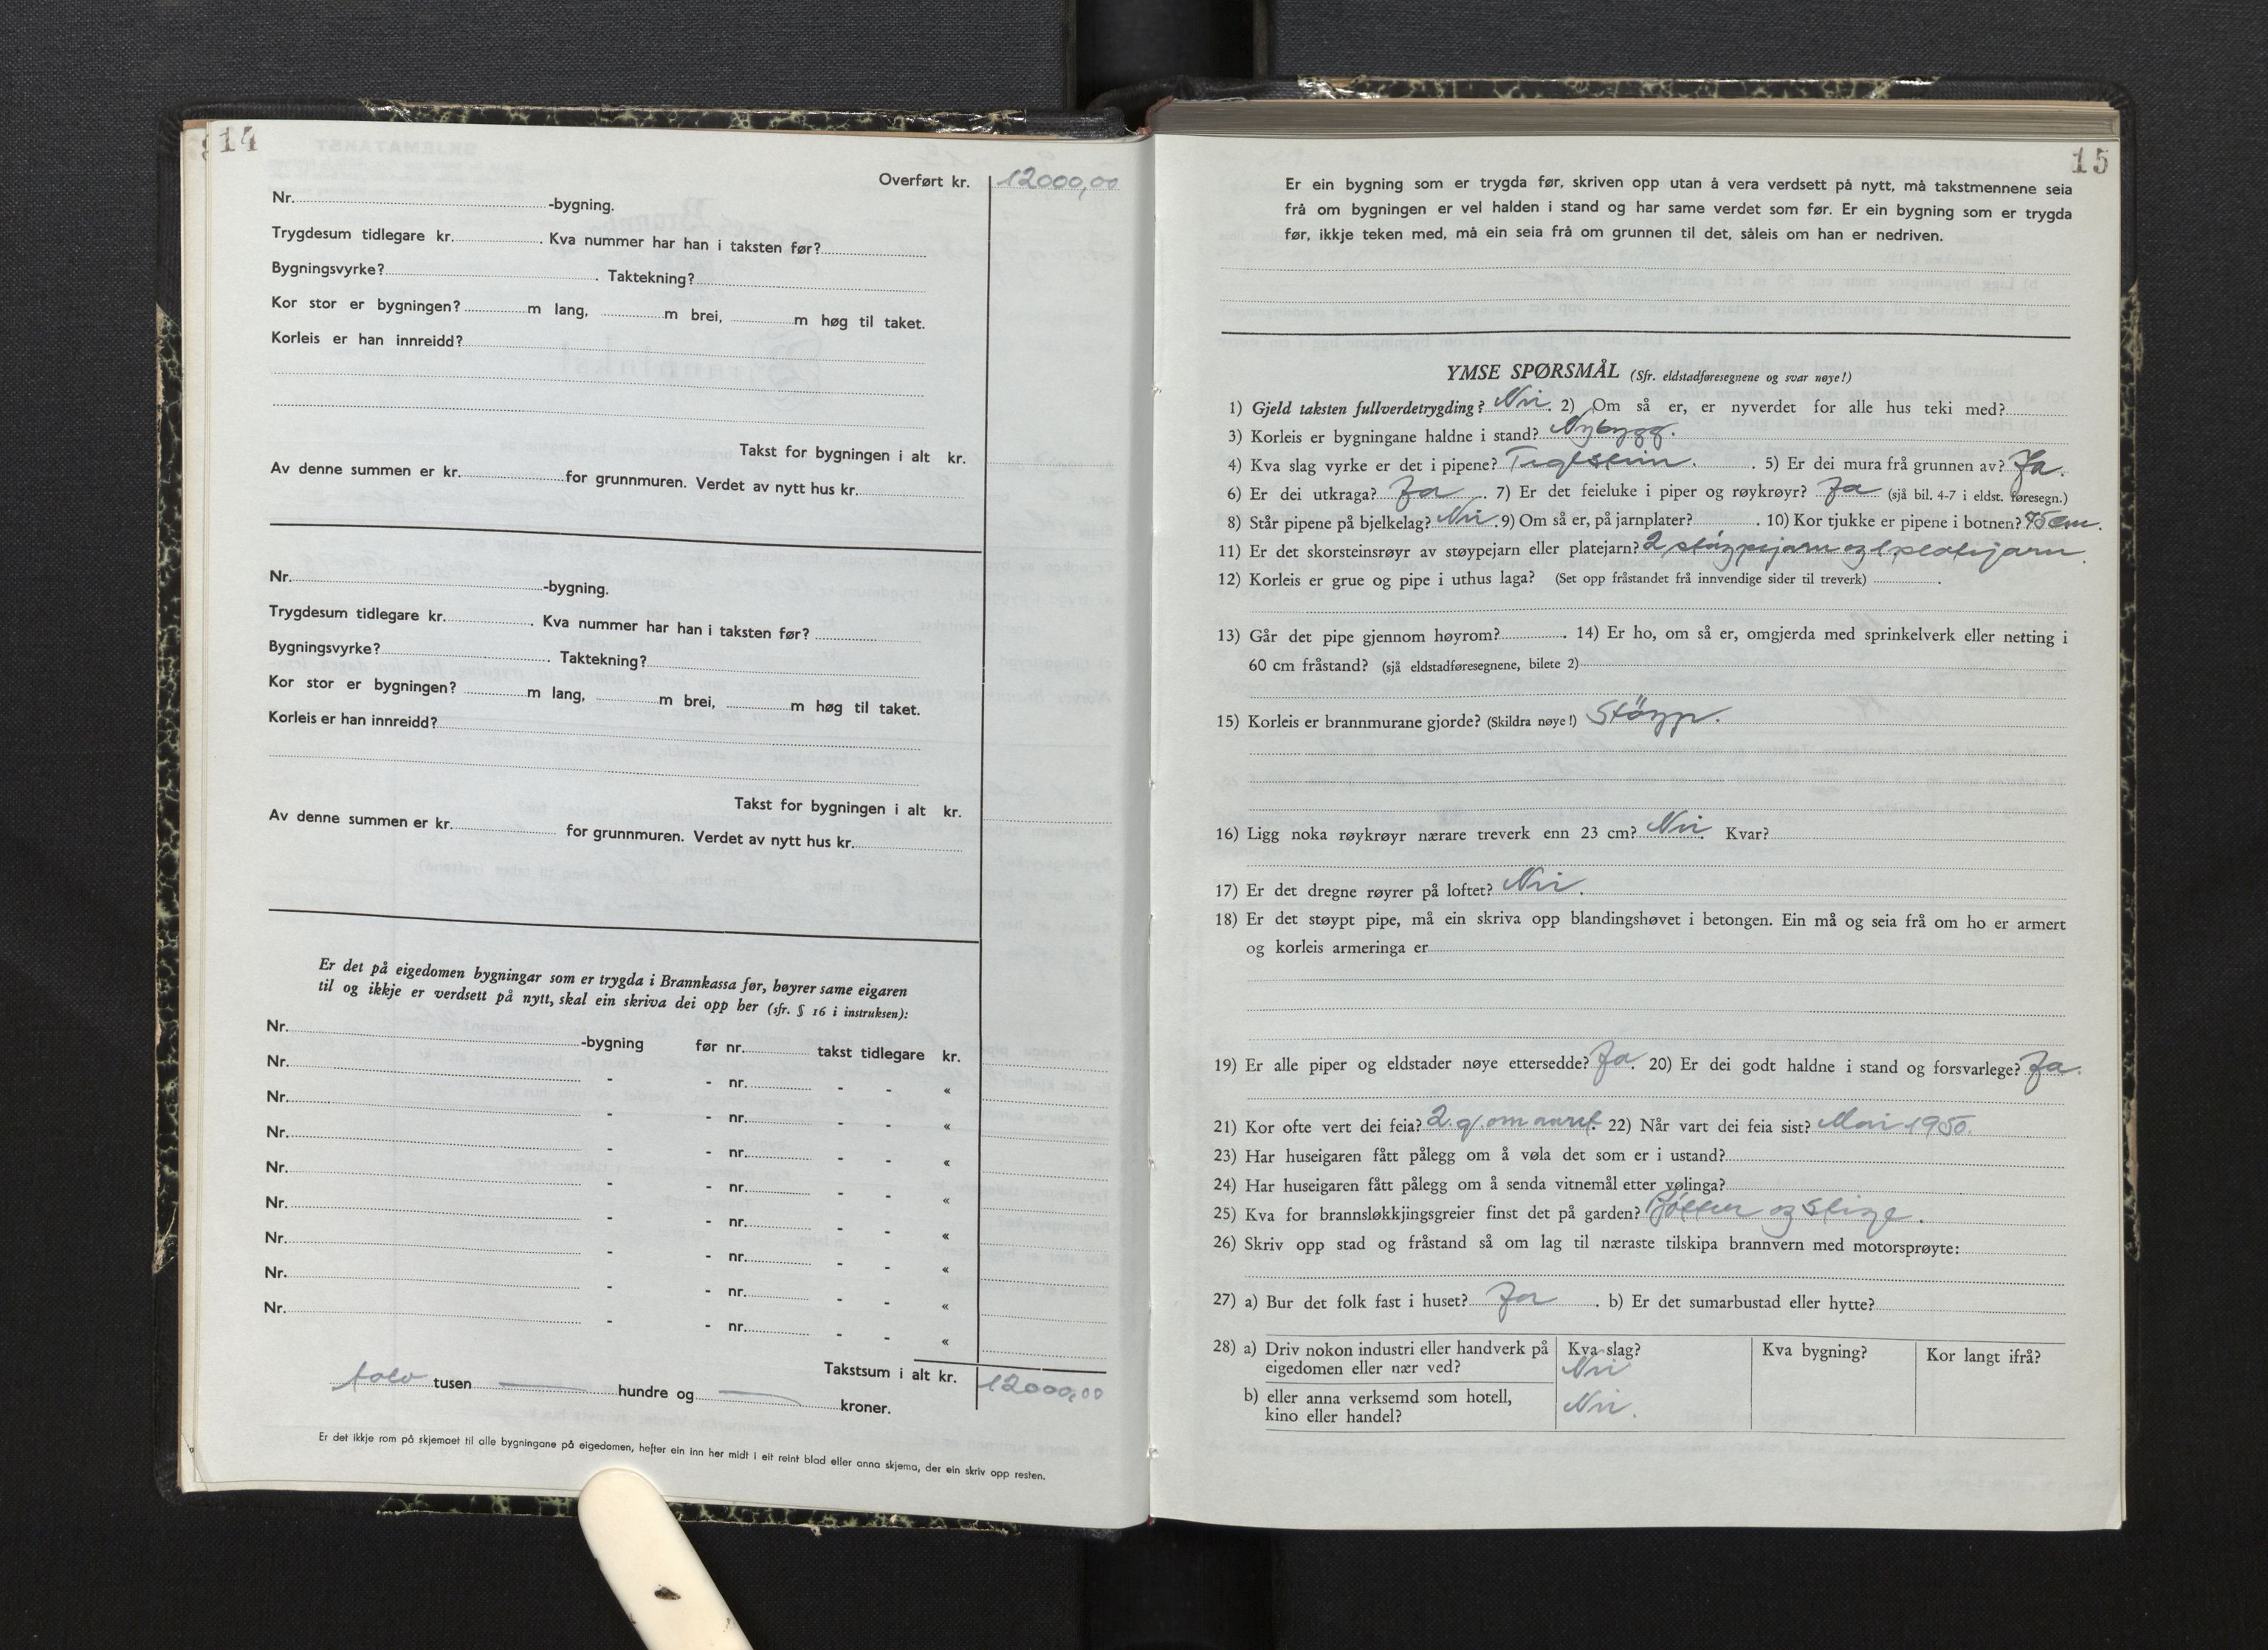 14
Overført kr. 12000,00
Nr. -bygning.
Trygdesum tidlegare kr. . Kva nummer har han i taksten før?
Bygningsvyrke? . Taktekning?
Kor stor er bygningen? m lang, m brei, m høg til taket.
Korleis er han innreidd?
Takst for bygningen i alt kr.
Av denne summen er kr. for grunnmuren. Verdet av nytt hus kr.
Nr. -bygning.
Trygdesum tidlegare kr. . Kva nummer har han i taksten før?
Bygningsvyrke? . Taktekning?
Kor stor er bygningen? m lang, m brei, m høg til taket.
Korleis er han innreidd?
Takst for bygningen i alt kr.
Av denne summen er kr. for grunnmuren. Verdet av nytt hus kr.
Er det på eigedomen bygningar som er trygda i Brannkassa før, høyrer same eigaren
til og ikkje er verdsett på nytt, skal ein skriva dei opp her (sfr. § 16 i instruksen):
Nr. -bygning før nr. takst tidlegare kr.
Nr. - - nr. - - «
Nr. - - nr. - - «
Nr. - - nr. - - «
Nr. - - nr. - - «
Nr. - - nr. - - «
Nr. - - nr. - - «
Nr. - - nr. - - «
Nr. - - nr. - - «
Takstsum i alt kr. 12000,00
tolv tusen — hundre og — kroner.
Er det ikkje rom på skjemaet til alle bygningane på eigedomen, hefter ein inn her midt i eit reint blad eller anna skjema, der ein skriv opp resten.
15
Er ein bygning som er trygda før, skriven opp utan å vera verdsett på nytt, må takstmennene seia
frå om bygningen er vel halden i stand og har same verdet som før. Er ein bygning som er trygda
før, ikkje teken med, må ein seia frå om grunnen til det, såleis om han er nedriven.
YMSE SPØRSMÅL (Sfr. eldstadføresegnene og svar nøye!)
1) Gjeld taksten fullverdetrygding? Nei. 2) Om så er, er nyverdet for alle hus teki med?
3) Korleis er bygningane haldne i stand? Nybygg.
4) Kva slag vyrke er det i pipene? Teglstein. . 5) Er dei mura frå grunnen av? Ja.
6) Er dei utkraga? Ja . 7) Er det feieluke i piper og røykrøyr? Ja (sjå bil. 4-7 i eldst. føresegn.)
8) Står pipene på bjelkelag? Nei . 9) Om så er, på jarnplater? . 10) Kor tjukke er pipene i botnen? 45 cm.
11) Er det skorsteinsrøyr av støypejarn eller platejarn? 2 støypejarn og 1 platejarn.
12) Korleis er grue og pipe i uthus laga? (Set opp fråstandet frå innvendige sider til treverk) .
13) Går det pipe gjennom høyrom? . 14) Er ho, om så er, omgjerda med sprinkelverk eller netting i
60 cm fråstand? (sjå eldstadføresegnene, bilete 2)
15) Korleis er brannmurane gjorde? (Skildra nøye!) Stöypt.
16) Ligg noka røykrøyr nærare treverk enn 23 cm? Nei. Kvar?
17) Er det dregne røyrer på loftet? Nei.
18) Er det støypt pipe, må ein skriva opp blandingshøvet i betongen. Ein må og seia frå om ho er armert
og korleis armeringa er
19) Er alle piper og eldstader nøye ettersedde? Ja. 20) Er dei godt haldne i stand og forsvarlege? Ja.
21) Kor ofte vert dei feia? 2. g. om aaret. 22) Når vart dei feia sist? Mai 1950.
23) Har huseigaren fått pålegg om å vøla det som er i ustand?
24) Har huseigaren fått pålegg om å senda vitnemål etter vølinga?
25) Kva for brannsløkkjingsgreier finst det på garden? Bøtter og stige.
26) Skriv opp stad og fråstand så om lag til næraste tilskipa brannvern med motorsprøyte:
27) a) Bur det folk fast i huset? Ja . b) Er det sumarbustad eller hytte?
28) a) Driv nokon industri eller handverk på Kva slag? Kva bygning? Kor langt ifrå?
eigedomen eller nær ved? Nei
b) eller anna verksemd som hotell, Nei.
kino eller handel?